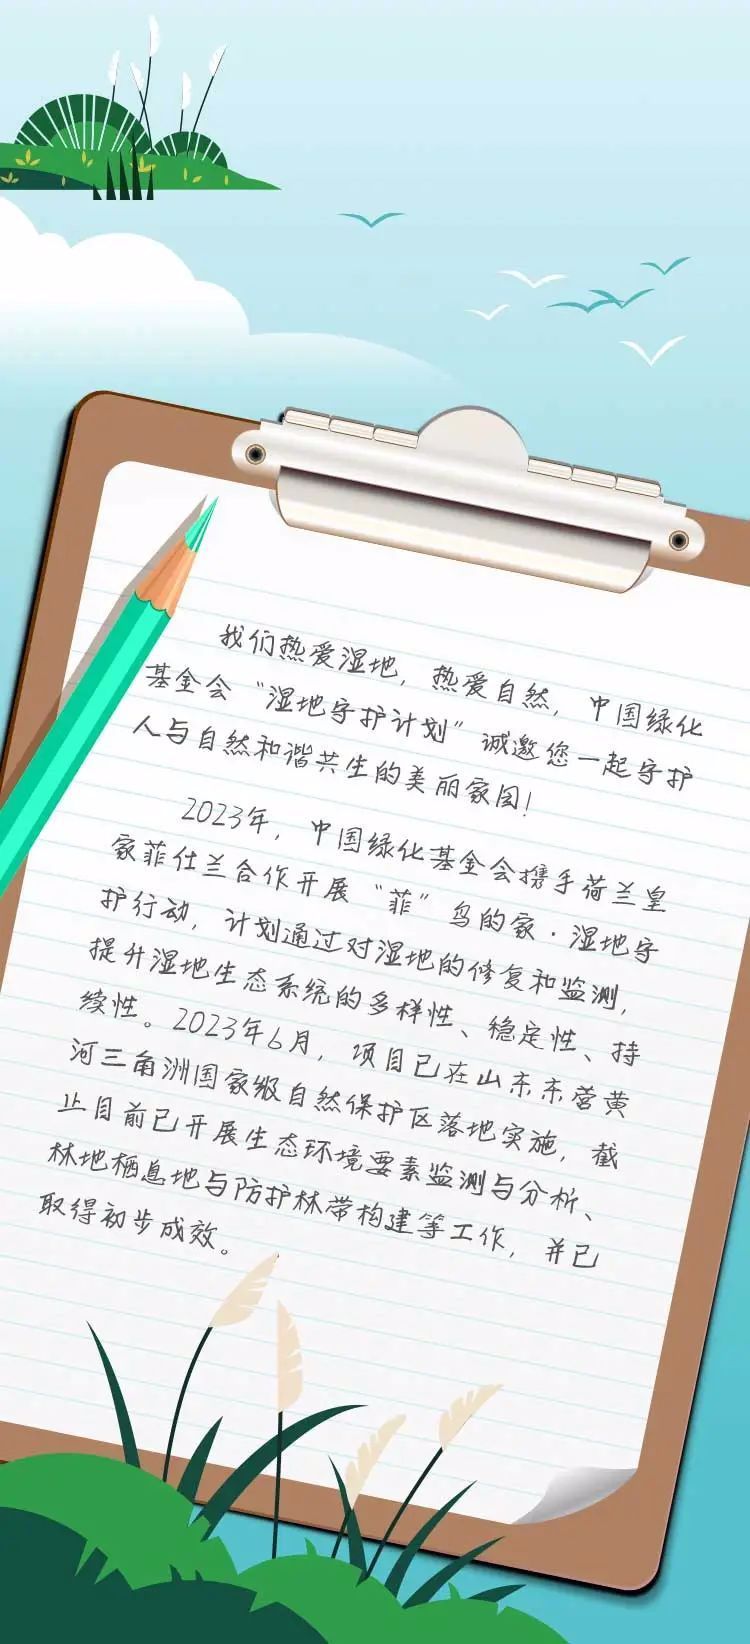 我们热爱湿地，热爱自然，中国绿化
基金会“湿地守护计划”诚邀您一起守护
人与自然和谐共生的美丽家园！
2023年，中国绿化基金会携手荷兰皇
家菲仕兰合作开展“菲”鸟的家·湿地守
护行动，计划通过对湿地的修复和监测，
提升湿地生态系统的多样性、稳定性、持
续性。2023年6月，项目已在山东东营黄
河三角洲国家级自然保护区落地实施，截
止目前已开展生态环境要素监测与分析、
林地栖息地与防护林带构建等工作，并已
取得初步成效。